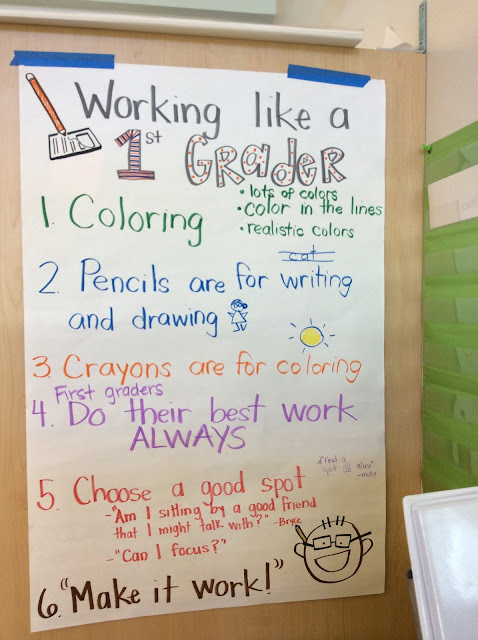 Working like a
1st Grader
1. Coloring
• lots of colors
• color in the lines
• realistic colors
cat
2. Pencils are for writing
and drawing
3. Crayons are for coloring
First graders
4. Do their best work
ALWAYS
"Find a
spot all alone"
5. Choose a good spot
- "Am I sitting by a good friend
that I might talk with?" - Bryce
- "Can I focus?"
6. "Make it work!"